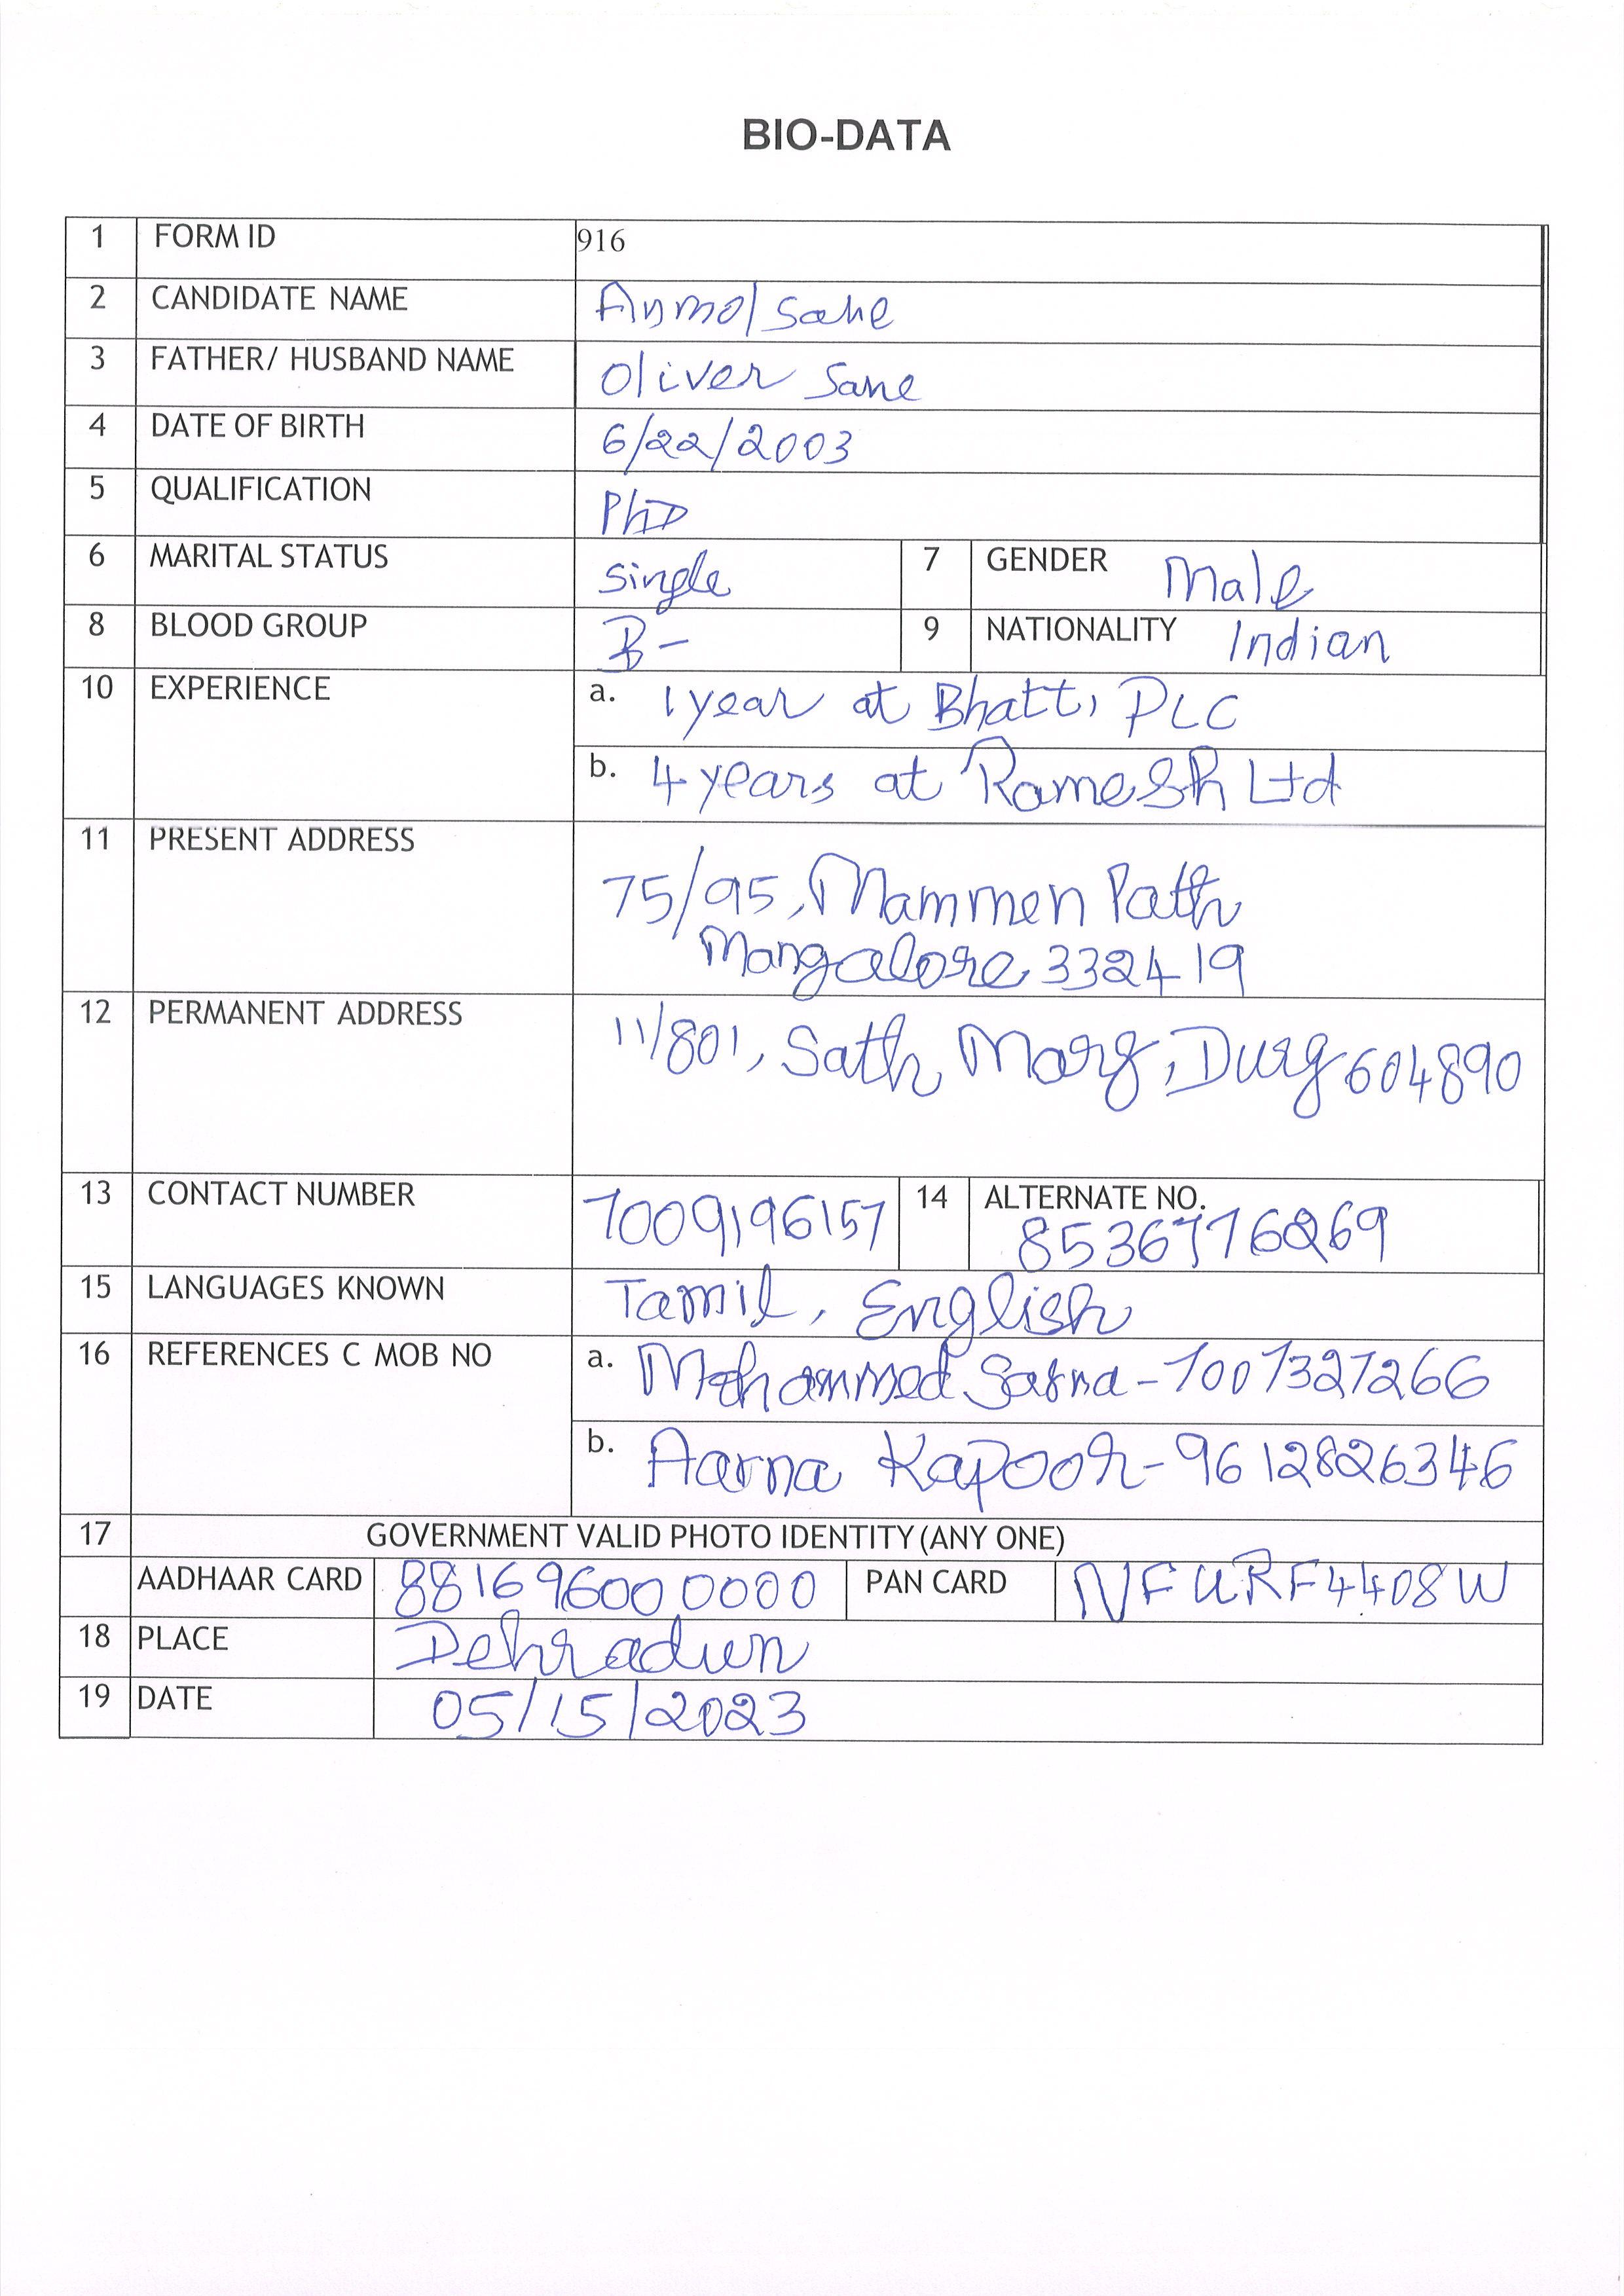 BIO-DATA
1 FORM ID 916
2 CANDIDATE NAME Anmol Sane
3 FATHER/ HUSBAND NAME Oliver Sane
4 DATE OF BIRTH 6/22/2003
5 QUALIFICATION PhD
6 MARITAL STATUS single 7 GENDER Male
8 BLOOD GROUP B- 9 NATIONALITY Indian
10 EXPERIENCE a. 1 year at Bhatt, PLC
b. 4 years at Ramesh Ltd
11 PRESENT ADDRESS
75/95, Mammen Path
Mangalore 332419
12 PERMANENT ADDRESS 11/801, Sath Marg, Durg 604890
13 CONTACT NUMBER 7009196157 14 ALTERNATE NO.
8536776269
15 LANGUAGES KNOWN Tamil, English
16 REFERENCES C MOB NO a. Mohammed - 7007327266
b. Aarna Kapoor - 9612826346
17 GOVERNMENT VALID PHOTO IDENTITY (ANY ONE)
AADHAAR CARD 881696000000 PAN CARD NFURF4408W
18 PLACE Dehradun
19 DATE 05/15/2023